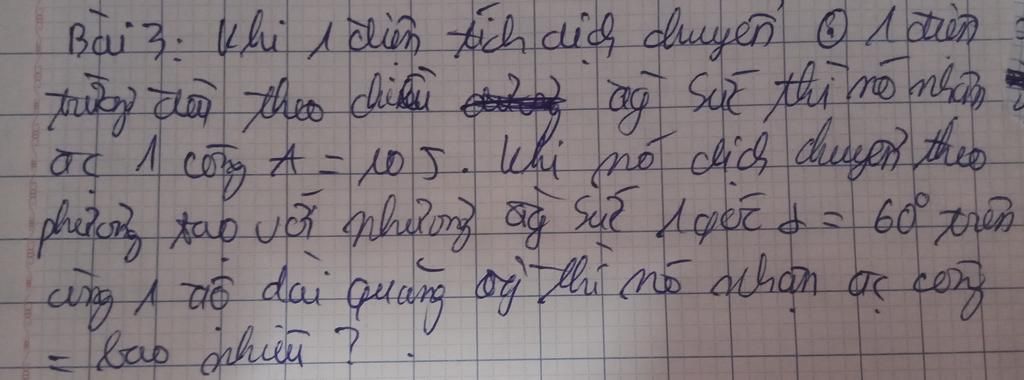 Bài 3: Khi 1 điện tích dịch chuyển 1 điện
trường đều theo chiều đg Sức thì nó nhận
đc 1 công A = 10 J. Khi nó dịch chuyển theo
phương tạo với phương đg Sức 1 góc α = 60° trên
cùng 1 độ dài quãng đg thì nó nhận đc công
= bao nhiêu ?